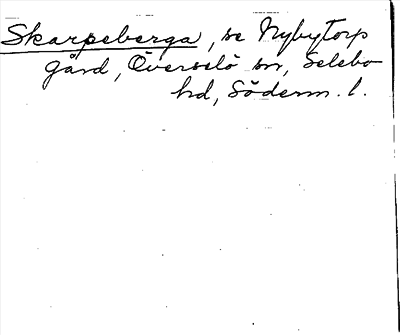 Skarpeberga, se Nybytorp
gård, Överselö sn, Selebo
hd, Söderm. l.